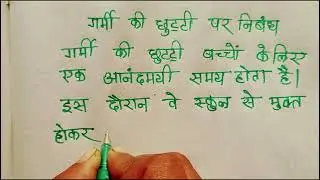 गर्मी की छुट्टी पर निबंध
गर्मी की छुट्टी बच्चों के लिए
एक आनंदमयी समय होता है।
इस दौरान वे स्कुल से मुक्त
होकर